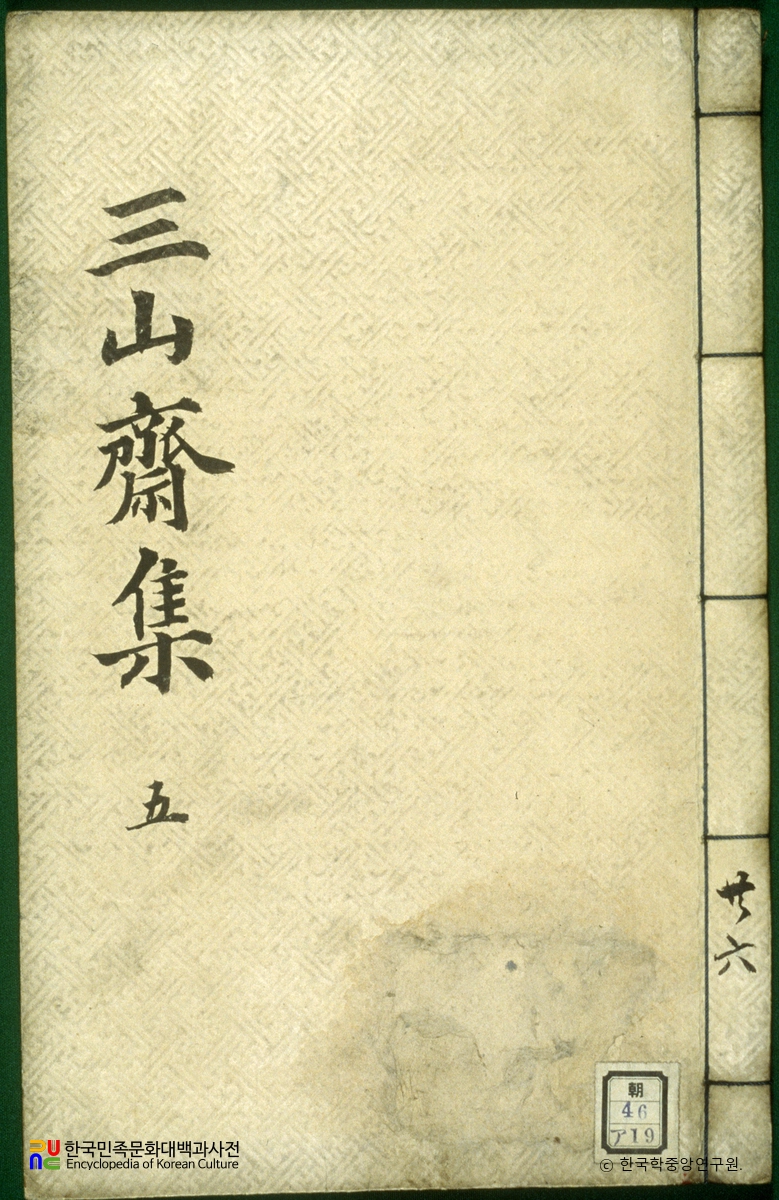 三山齋集
五
共六
朝
46
ア19
한국민족문화대백과사전
Encyclopedia of Korean Culture
© 한국학중앙연구원.